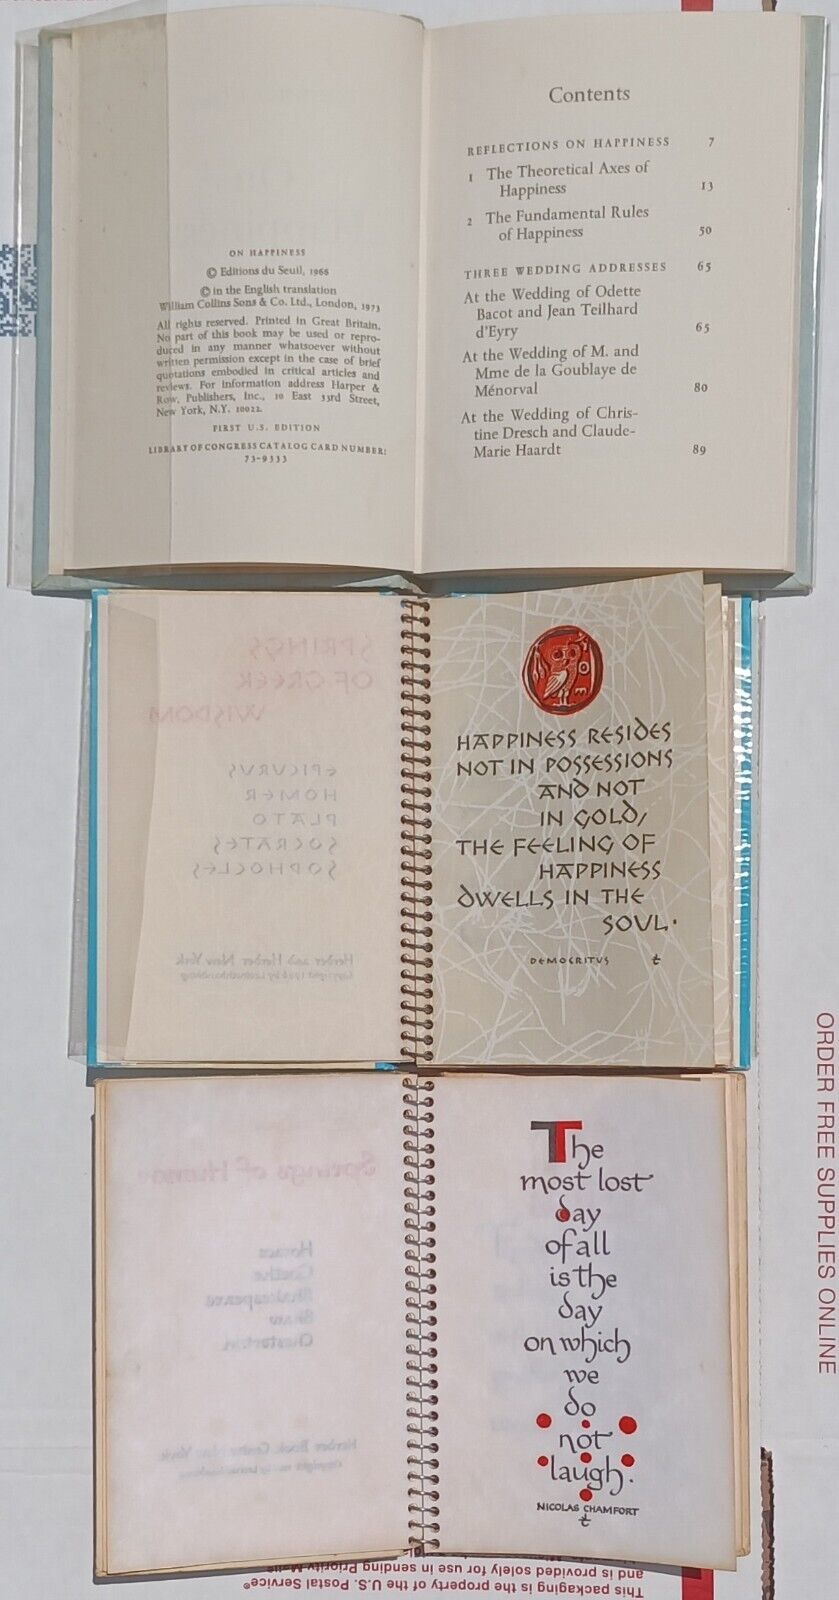 ON HAPPINESS
© Editions du Seuil, 1966
© in the English translation
William Collins Sons & Co. Ltd., London, 1973
All rights reserved. Printed in Great Britain.
No part of this book may be used or repro-
duced in any manner whatsoever without
written permission except in the case of brief
quotations embodied in critical articles and
reviews. For information address Harper &
Row, Publishers, Inc., 10 East 33rd Street,
New York, N.Y. 10022.
FIRST U.S. EDITION
LIBRARY OF CONGRESS CATALOG CARD NUMBER:
73-9333
Contents
REFLECTIONS ON HAPPINESS 7
1 The Theoretical Axes of
Happiness 13
2 The Fundamental Rules
of Happiness 50
THREE WEDDING ADDRESSES 65
At the Wedding of Odette
Bacot and Jean Teilhard
d'Eyry 65
At the Wedding of M. and
Mme de la Goublaye de
Ménorval 80
At the Wedding of Chris-
tine Dresch and Claude-
Marie Haardt 89
SPRINGS
OF GREEK
WISDOM
EPICURUS
HOMER
PLATO
SOCRATES
SOPHOCLES
Herder and Herder New York
HAPPINESS RESIDES
NOT IN POSSESSIONS
AND NOT
IN GOLD,
THE FEELING OF
HAPPINESS
DWELLS IN THE
SOUL.
DEMOCRITUS
Springs of Humor
Horace
Goethe
Shakespeare
Shaw
Chesterton
Herder Book Center New York
The
most lost
day
of all
is the
day
on which
we
do
not
laugh.
NICOLAS CHAMFORT
ORDER FREE SUPPLIES ONLINE
This packaging is the property of the U.S. Postal Service®
and is provided solely for use in sending Priority Mail®